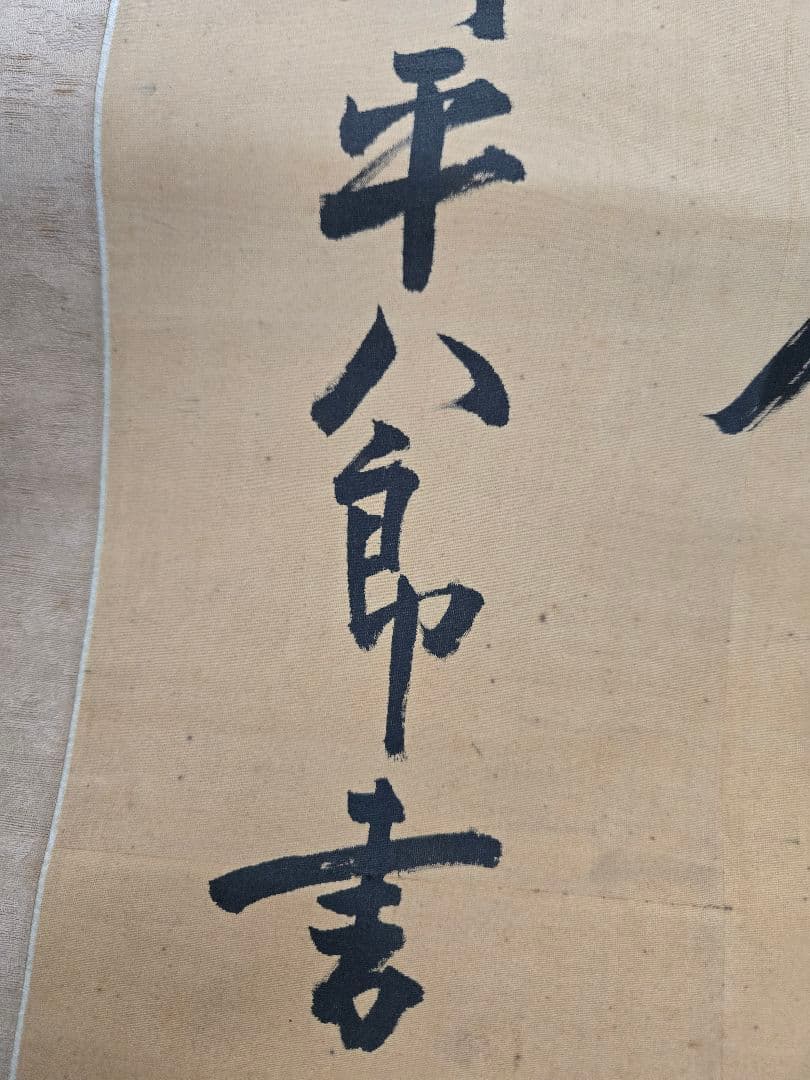 平八郎書